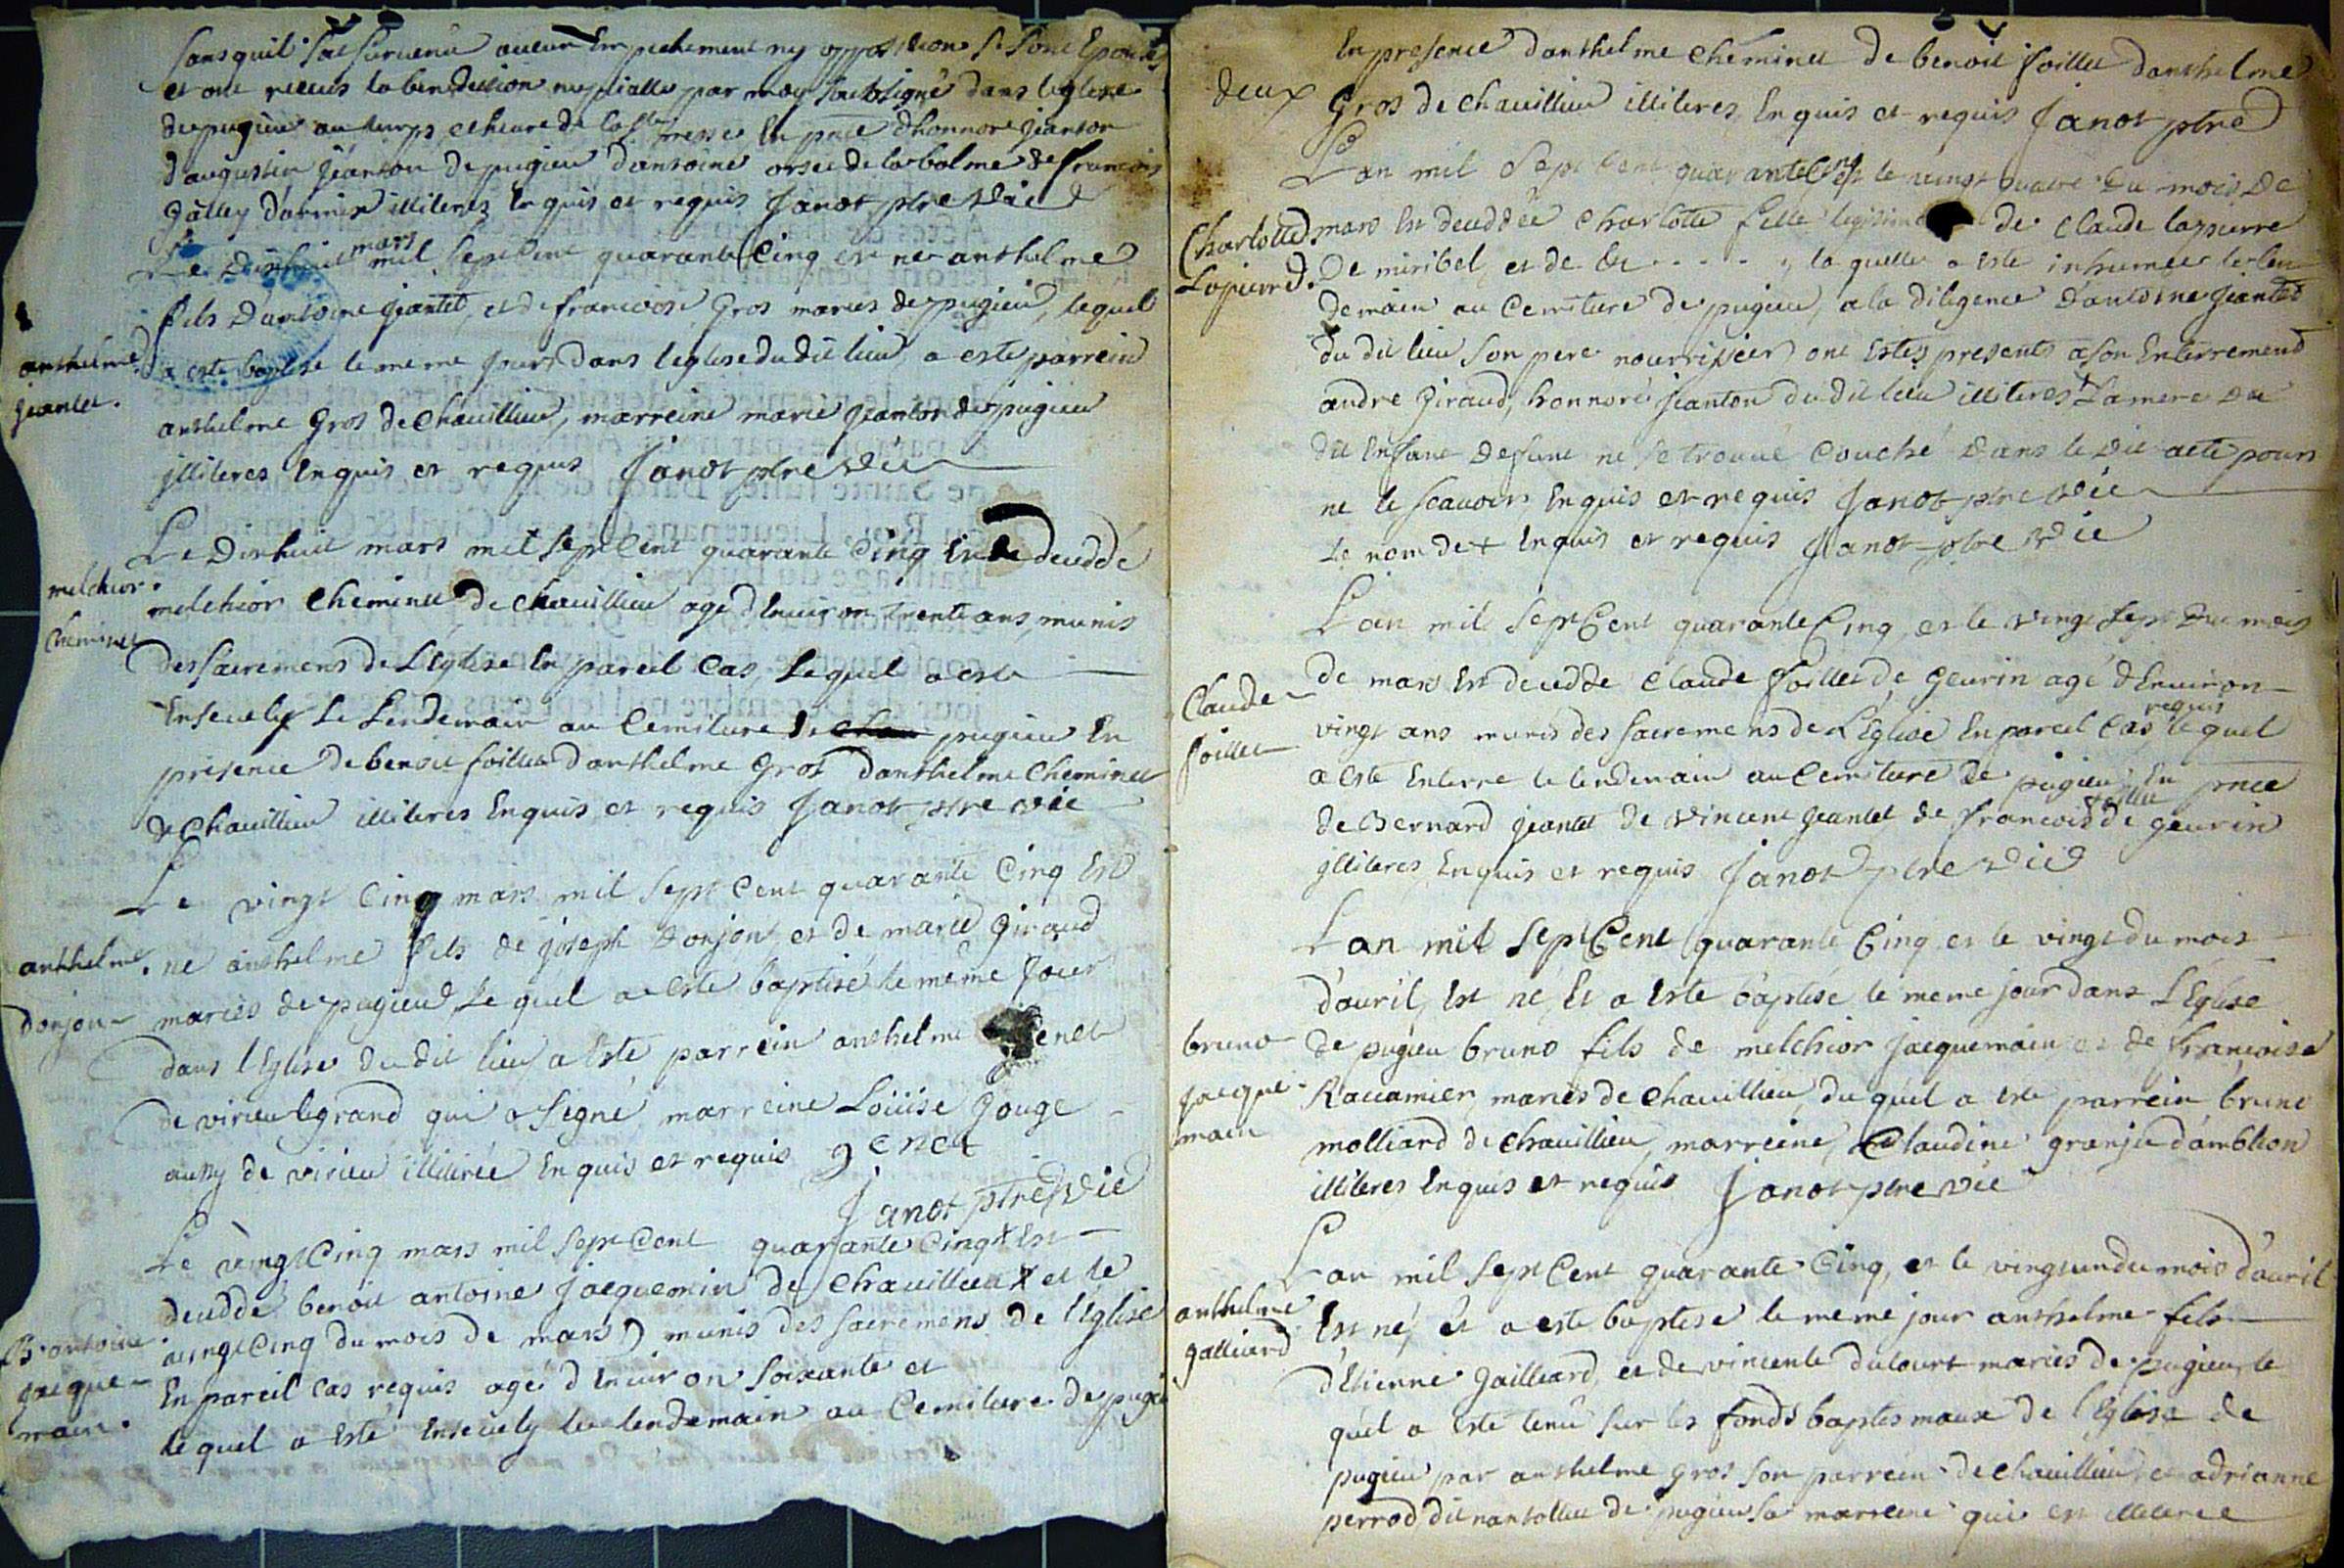 sans quil sai survenu aucun Empechement ny opposition se sont Epousés
et ont receus la benediction nuptialle par moy soubsigné dans leglise
de pugieu au temps et heure de la ste messe En pnce dhonnore jeanton
daugustin jeanton de pugieu dantoine orset de la balme de francois
galley darmix illiteres Enquis et requis Janot ptre vic
Le dixhuit mars mil sept Cent quarante Cinq est ne anthelme
fils dantoine jeantet, et de francoise Gros maries de pugieu, lequel
anthelme a este baptise le meme jour dans leglise du dit lieu a este parrein
jeantet.
anthelme Gros de Chavillieu, marreine marie jeanton de pugieu
illiteres Enquis et requis Janot ptre vic
Le Dixhuit mars mil sept Cent quarante Cinq Est deuddé
melchior. melchior Cheminet de chavillieu agé d'Environ trente ans, munis
Cheminet
des sacremens de L'Eglise En pareil Cas, Lequel a este
Ensevely Le Lendemain au Cemitiere de pugieu En
présence de benoit foillet danthelme Gros danthelme Cheminet
de Chavillieu illiteres Enquis et requis Janot ptre vic
Le vingt Cinq mars mil sept Cent quarante Cinq Est
anthelme. ne anthelme fils de joseph donjon et de marie Giraud
donjon mariés de pugieu, Le quel a este baptisé le même jour
dans l'Eglise du dit lieu, a Esté parrein anthelme genet
de virieu legrand qui a signé marreine Loüise gouge
aussy de virieu illitirée Enquis et requis genet
Janot ptre vic
Le vingt Cinq mars mil sept Cent quarante Cinq + Est
deuddé benoit antoine jacquemin de Chavillieu + et le
B. antoine vingt Cinq du mois de mars) munis des sacremens de l'Eglise
jacque- En pareil Cas requis agé d'Environ soixante et
main. le quel a Esté Ensevely le lendemain au Cemitiere de pugieu
En presence danthelme Cheminet de benoit foillet danthelme
deux Gros de chavillieu illiteres, Enquis et requis Janot ptre
L'an mil Sept Cent quarante Cinq et le vingt quatre du mois De
Charlotte mars Est deuddée Charlotte fille legitime de Claude lapierre
Lapierre. De miribel, et de la . . . . . , la quelle a este inhumée le len
demain au Cemitiere de pugieu, a la diligence d'antoine jeantet
du dit lieu son pere nourrissier, ont Estés presents a son Enterrement
andre Giraud, honnoré jeanton du dit lieu illiteres + La mere du
dit Enfant defunt ne se trouve Couché dans le dit acte pour
ne le scavoir Enquis et requis Janot ptre vic
Le nom de + Enquis et requis Janot ptre vic
L'an mil sept Cent quarante Cinq, et le vingt sept du mois
de mars Est deuddé Claude foillet de Geurin agé d'Environ
Claude vingt ans munis des sacremens de L'Eglise En pareil Cas requis le quel
foillet a este Enterre le lendemain au Cemitiere de pugieu En pnce
de Bernard jeantet de vincent jeantet de francois foillet de geurin
illiteres Enquis et requis Janot ptre vic
L'an mil sept Cent quarante Cinq, et le vingt du mois
d'avril, Est né, Et a Este baptisé le meme jour dans L'Eglise
bruno de pugieu bruno fils de melchior jacquemain et de françoise
jacque- Racamier, mariés de chavillieu, du quel a este parrein bruno
main molliard de chavillieu, marreine, Claudine granju d'amblion
illiteres Enquis et requis Janot ptre vic
L'an mil sept Cent quarante Cinq, et le vingt un du mois d'avril
anthelme Est né, et a este baptise le meme jour anthelme fils
galliard d'Etienne Gailliard, et de vincente dutourt mariés de pugieu, le
quel a Esté tenu sur les fonds baptismaux de l'Eglise de
pugieu par anthelme gros son parrein de chavillieu, et adrianne
perrod dit nantollieu de pugieu sa marreine qui est illiterée